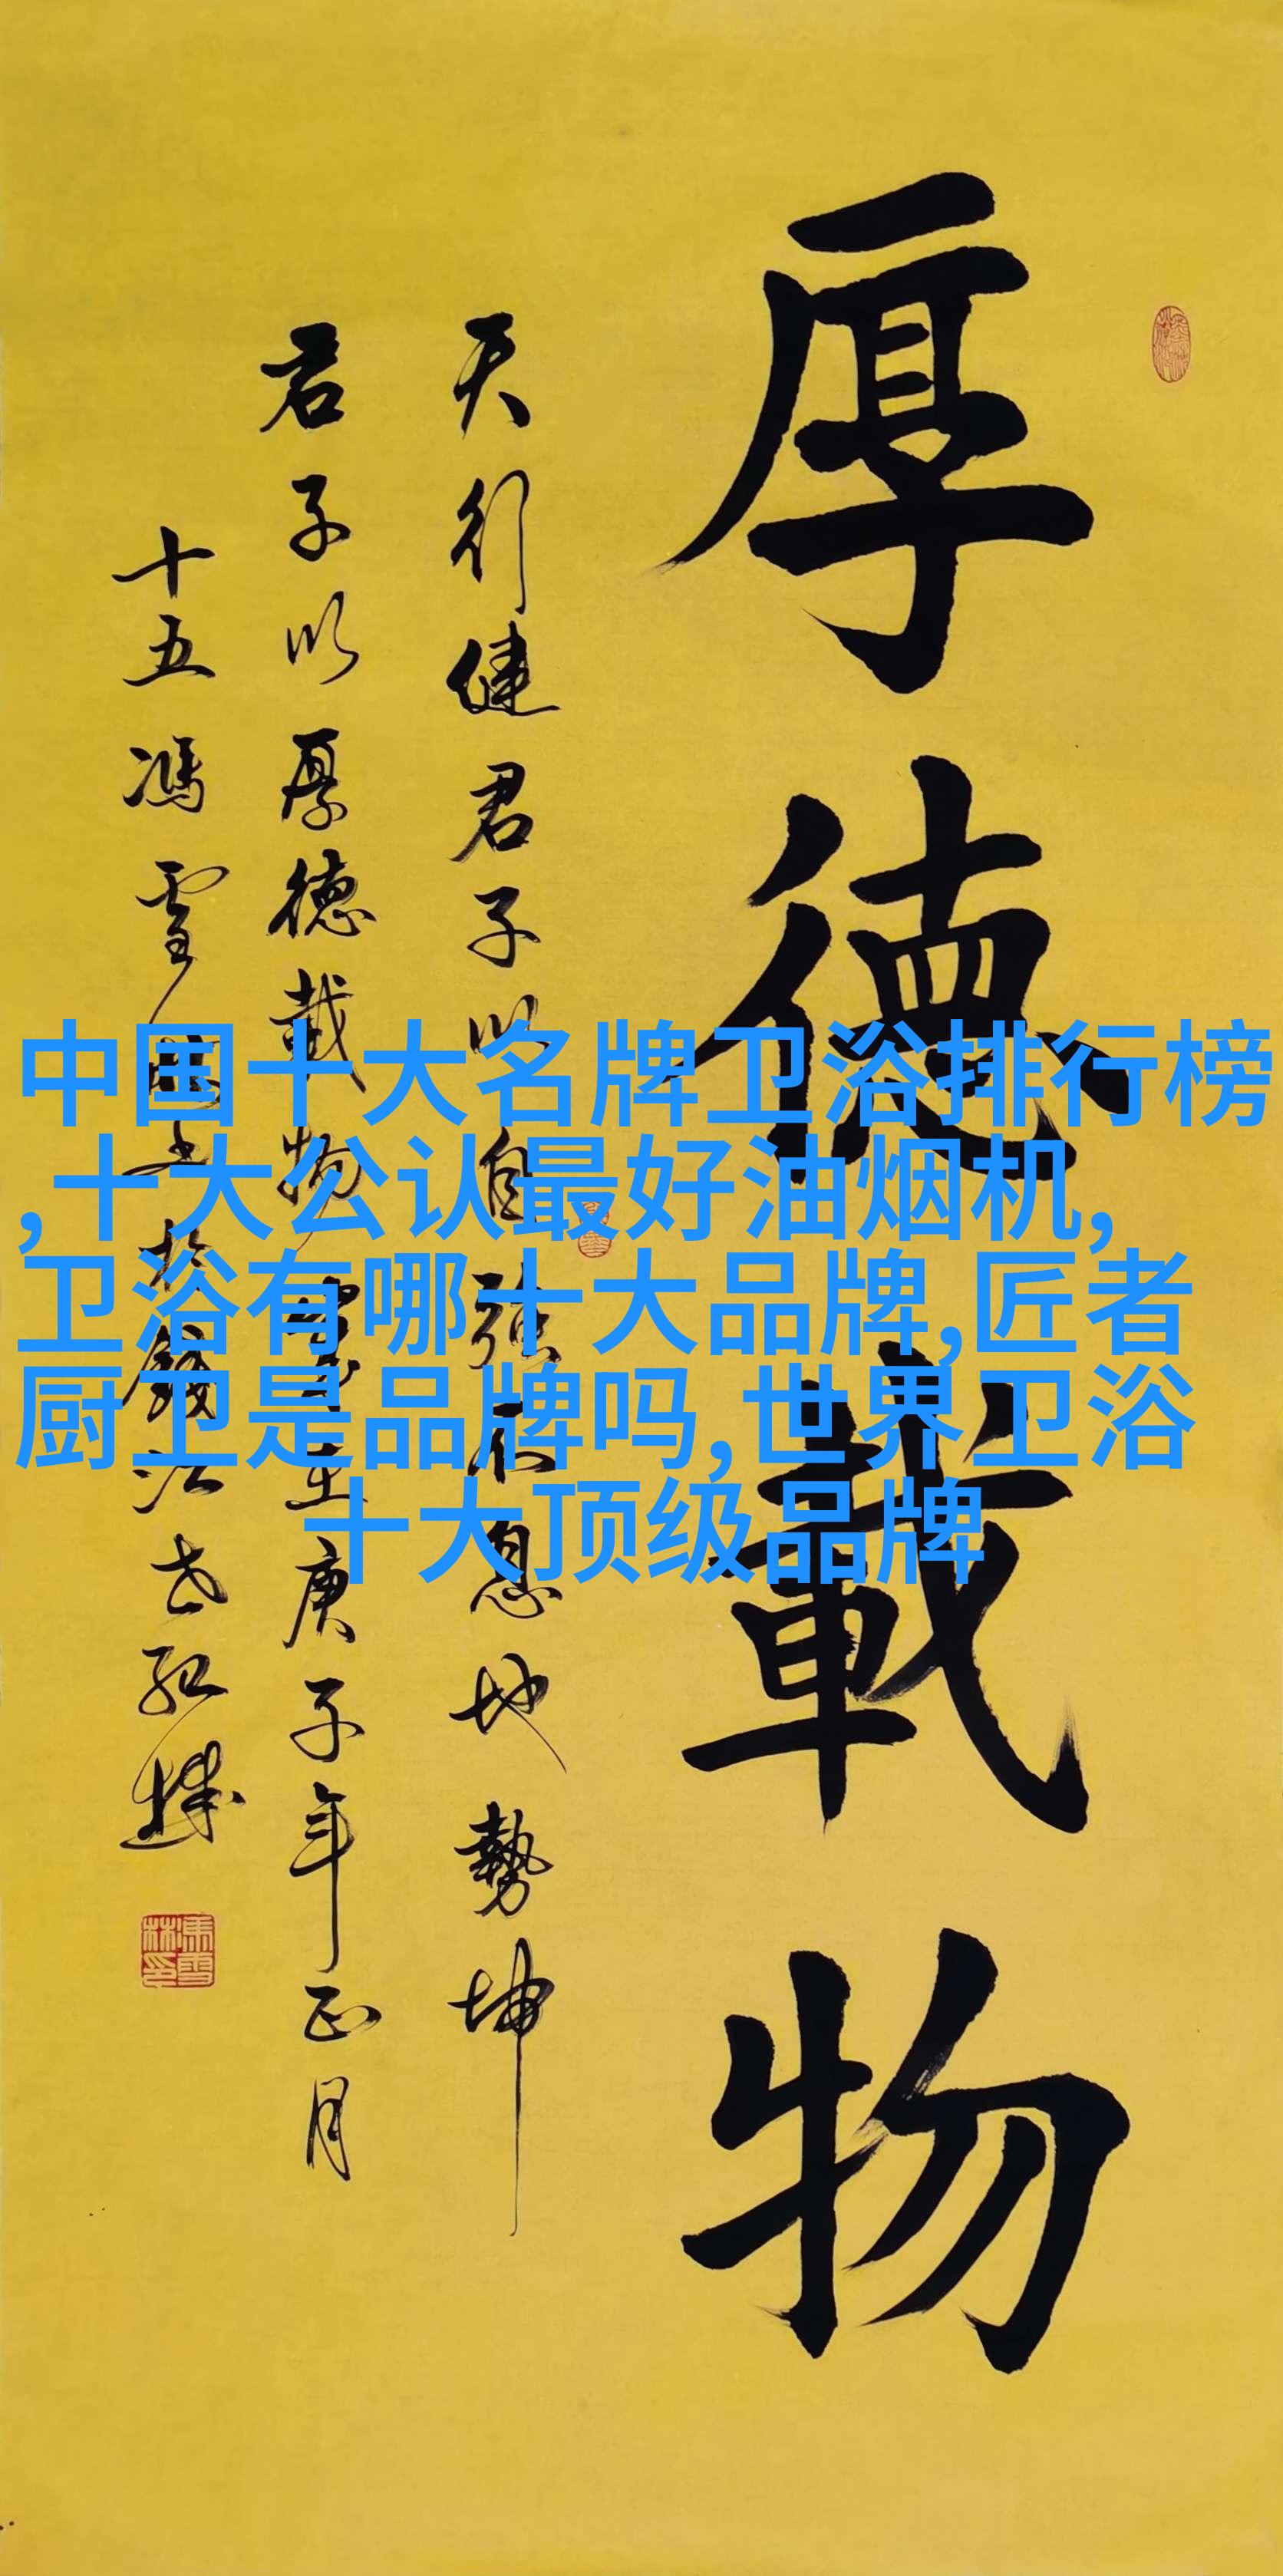 厚德載物
天行健君子以自强不息地勢坤
君子以厚德載物歲在庚子年正月
十五馮雪林书於錢江
中国十大名牌卫浴排行榜
,十大公认最好油烟机,
卫浴有哪十大品牌,匠者
厨卫是品牌吗,世界卫浴
十大顶级品牌
馮雪林印